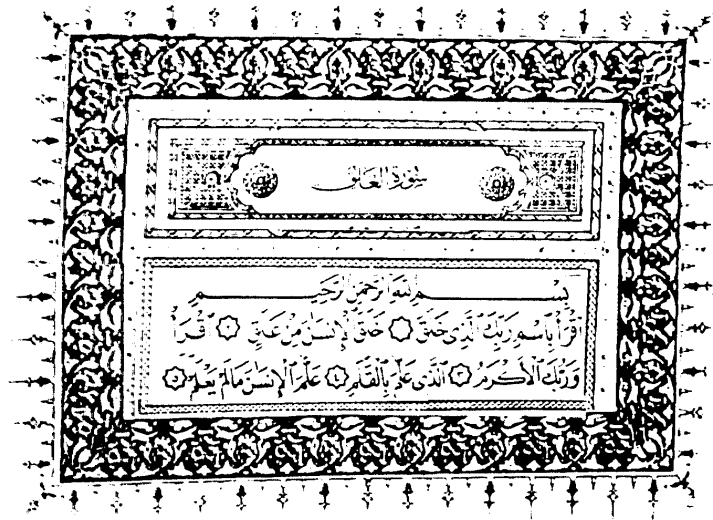 سُورَةُ العَلَق
بِسْمِ اللَّهِ الرَّحْمَنِ الرَّحِيمِ
اقْرَأْ بِاسْمِ رَبِّكَ الَّذِي خَلَقَ ۝ خَلَقَ الْإِنسَانَ مِنْ عَلَقٍ ۝٢ اقْرَأْ
وَرَبُّكَ الْأَكْرَمُ ۝٣ الَّذِي عَلَّمَ بِالْقَلَمِ ۝٤ عَلَّمَ الْإِنسَانَ مَا لَمْ يَعْلَمْ ۝٥